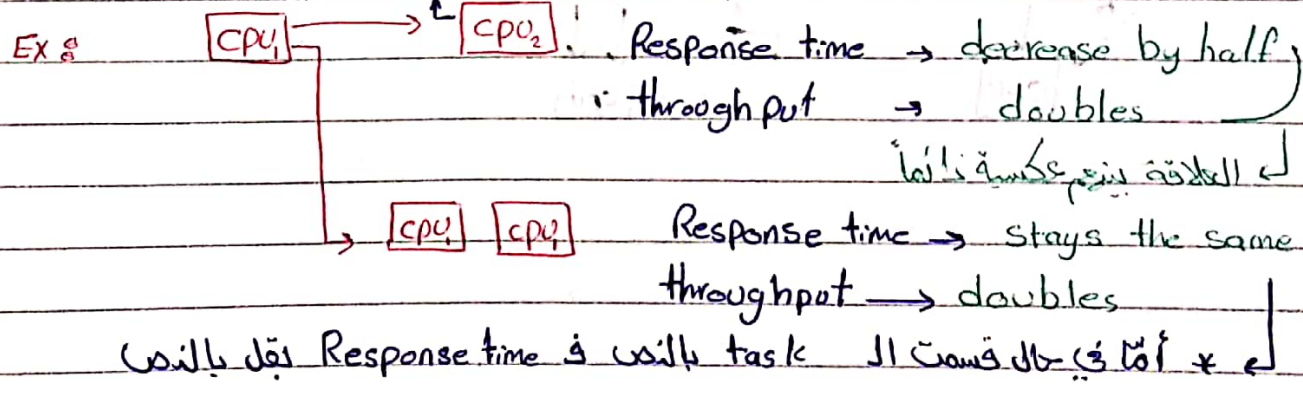 Ex: CPU₁ → CPU₂ Response time → decrease by half
throughput → doubles
↲ العلاقة بينهم عكسية دائماً
→ CPU₁ CPU₁ Response time → stays the same
throughput → doubles
↲ * أمّا في حال قسمت الـ task بالنص ف Response time بقل بالنص